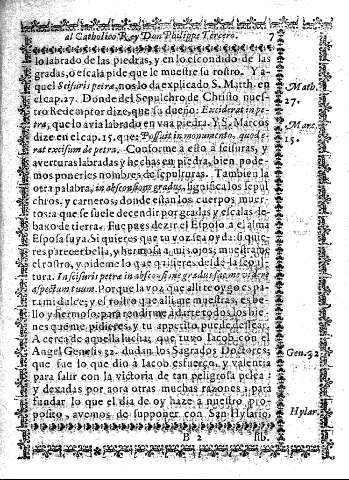 al Catholico Rey Don Philippe Tercero. 7
lo labrado de las piedras, y en lo escondido de las
gradas, o escala pide que le muestre su rostro. Y a-
quel Scisuris petræ, nos lo da explicado S. Matth. en
el cap. 27. Donde del Sepulchro de Christo nues-
tro Redemptor dize, que su dueño: Exciderat in pe-
tra, que lo avia labrado en vna piedra. Y S. Marcos
dize en el cap. 15. que Possuit in monumento, quod e-
rat excisum de petra. Conforme a esto a scisuras, y
averturas labradas y hechas en piedra, bien pode-
mos ponerles nombres de sepulturas. Tambien la
otra palabra, in absconsione gradus, significa los sepul
chros, y carneros, donde estan los cuerpos muer-
tos: a que se suele decendir por gradas y escalas de-
baxo de tierra. Fue pues dezir el Esposo a el alma
Esposa suya. Si quieres que tu voz sea oyda: si quie-
res parecer bella, y hermosa a mis ojos; muestrame
el rostro, y pideme lo que quisieres desde la sepul-
tura. In scisuris petræ in absconsione gradus
aspectum tuum. Porque la voz que alli te oygo es pa-
ra mi dulce; y el rostro que alli me muestras, es be-
llo y hermoso, para rendirme a darte todos los bie-
nes que me pidieres, y tu appetito puede dessear.
A cerca de aquella lucha, que tuvo Iacob con el
Angel Genesis 32. dudan los Sagrados Doctores;
que fue lo que dio a Iacob esfuerço, y valentia
para salir con la victoria de tan peligrosa pelea:
y dexadas por aora otras muchas razones, para
fundar lo que el dia de oy haze a nuestro pro-
posito, avemos de supponer con San Hylario,
B 2 lib.
Math.
27.
Marc.
15.
Gen. 32
Hylar.